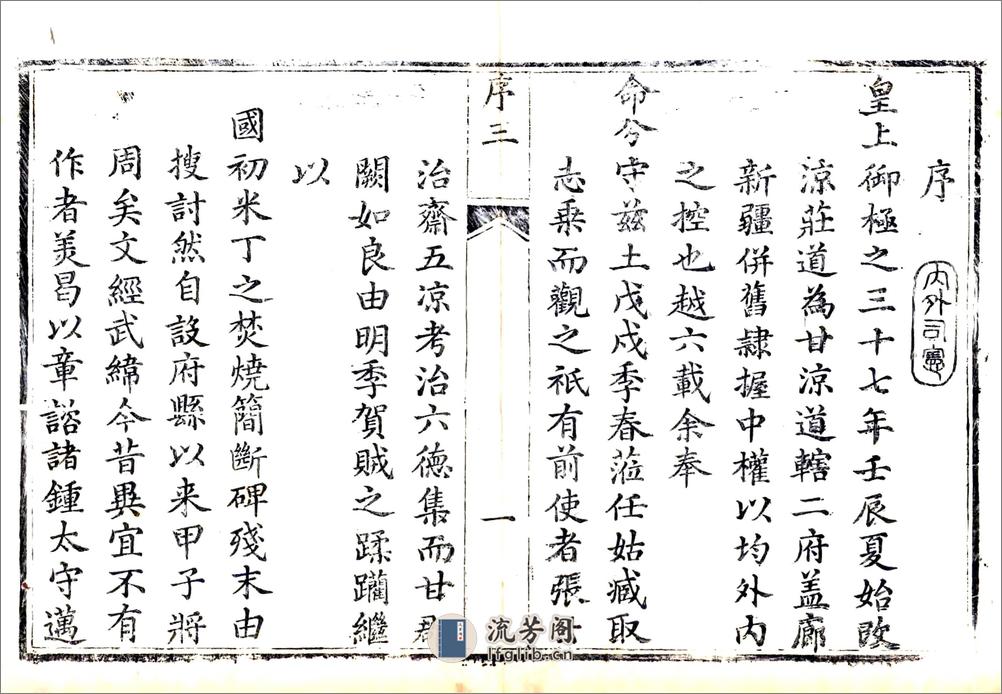 序
內外司憲
皇上御極之三十七年壬辰夏始改
涼莊道為甘涼道轄二府盖廊
新疆併舊隸握中權以均外內
之控也越六載余奉
命分守兹土戊戌季春蒞任姑臧取
志乘而觀之祇有前使者張
序三
一
治齋五凉考治六德集而甘郡
闕如良由明季賀賊之蹂躪繼
以
國初米丁之焚燒簡斷碑殘末由
搜討然自設府縣以来甲子將
周矣文經武緯今昔異宜不有
作者美曷以章諮諸鍾太守邁
流芳阁
lfglib.cn